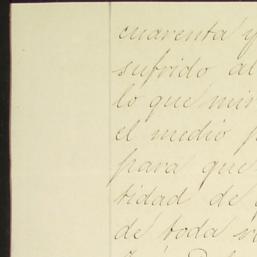 cuarenta y
sufrido al
lo que mis
el medio p
para que
tidad de
de toda